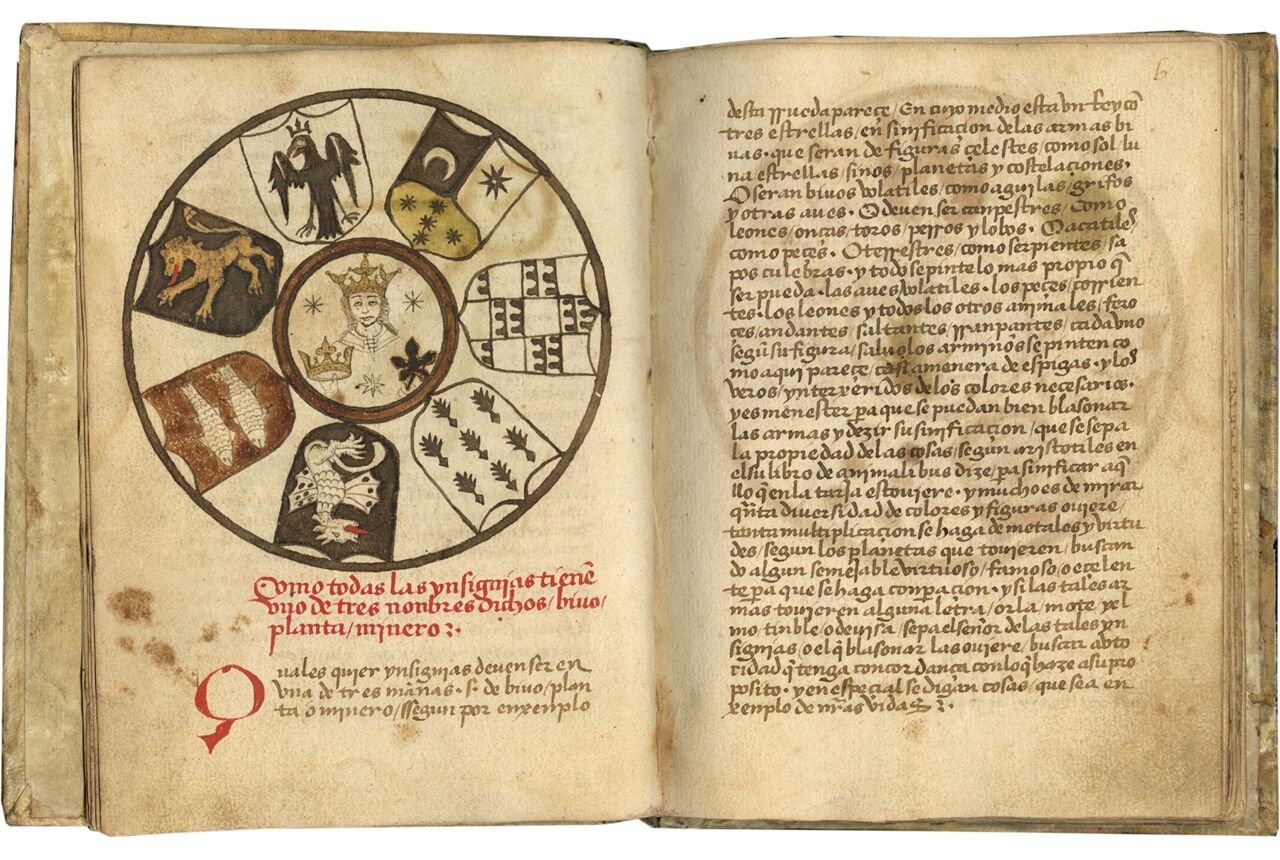 Como todas las ynsignias tienẽ
vno de tres nonbres dichos / bivo /
planta / minero ⁊.
Quales quier ynsignias deven ser en
vna de tres mãnas. s. de bivo / plan
ta o minero / ssegun por enxenplo
6
desta rrueda pareçe / En cuyo medio esta vn Rey cõ
tres estrellas / en sinificacion de las armas bi
uas. que seran de figuras çelestes / como sol / lu
na estrellas / sinos / planetas y costelaciones.
O seran bivos volatiles / como aguilas / grifos
y otras aves. O deven ser canpestres / Como
leones / onças / toros / perros y lobos. O acatiles
como peçes. O terrestres / como serpientes / sa
pos culebras. y todo se pinte lo mas propio q̃
ser pueda. las aves volatiles. los peçes / corrien
tes. los leones y todos los otros animales / fero
çes / andantes / saltantes / rranpantes / cada vno
segũ su figura / saluo los arminõs se pinten co
mo aqui pareçe / casi a menera de espigas. y los
veros / ynterxeridos de los colores neçesarios.
y es menester pa que se puedan bien blasonar
las armas y dezir su sinificacion / que se sepa
la propiedad de las cosas / segun aristotiles en
el su libro de animalibus dize / pa sinificar aq̃
llo q̃ en la tarja estouiere. y mucho es de mirar
quãta diversidad de colores y figuras ouiere /
tanta multiplicacion se haga de metales y virtu
des / segun los planetas que touieren / buscan
do algun semejable virtuoso / famoso / o eçelen
te pa que se haga conparacion. y si las tales ar
mas touieren alguna letra / orla / mote yel
mo / tinble / o deuisa / sepa el señor de las tales yn
signias / o el q̃ blasonar las ouiere / buscar abto
ridad q̃ tenga concordança con lo q̃ haze a su pro
posito. y en espeçial se digan cosas / que sea en
xenplo de nr̃as vidas ⁊.